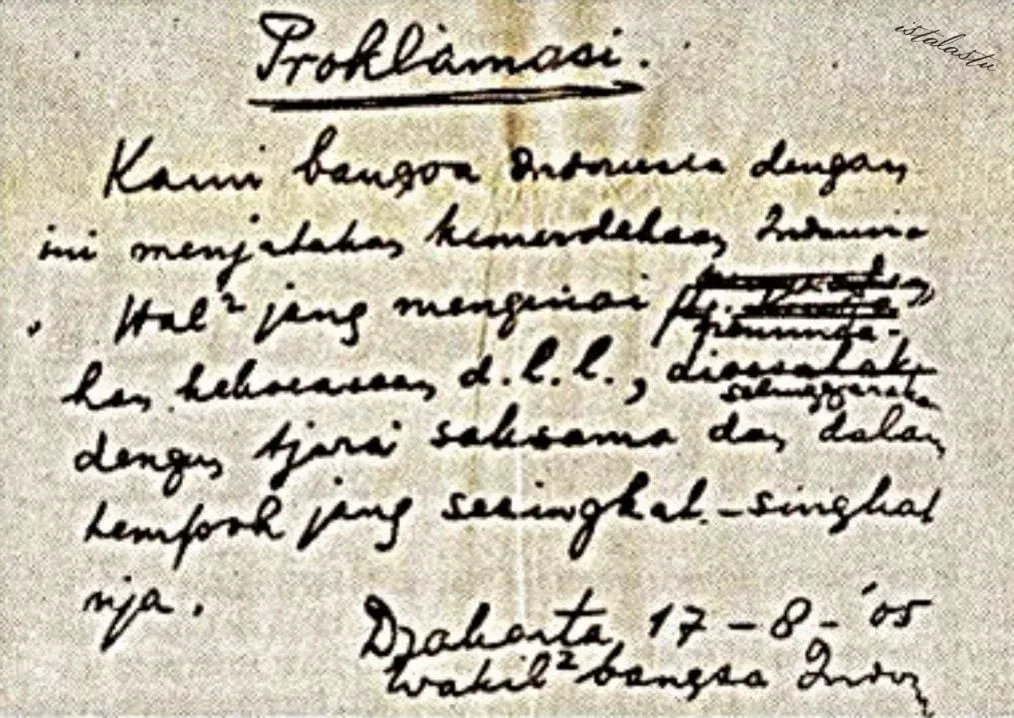 istalastu
Proklamasi.
Kami bangsa Indonesia dengan
ini menjatakan kemerdekaan Indonesia
. Hal² jang mengenai pemindа-
han kekoeasaan d.l.l., dioesahakan
selenggarakan
dengan tjara saksama dan dalam
tempoh jang sesingkat-singkat
nja.
Djakarta, 17 – 8 – '05
Wakil² bangsa Indon